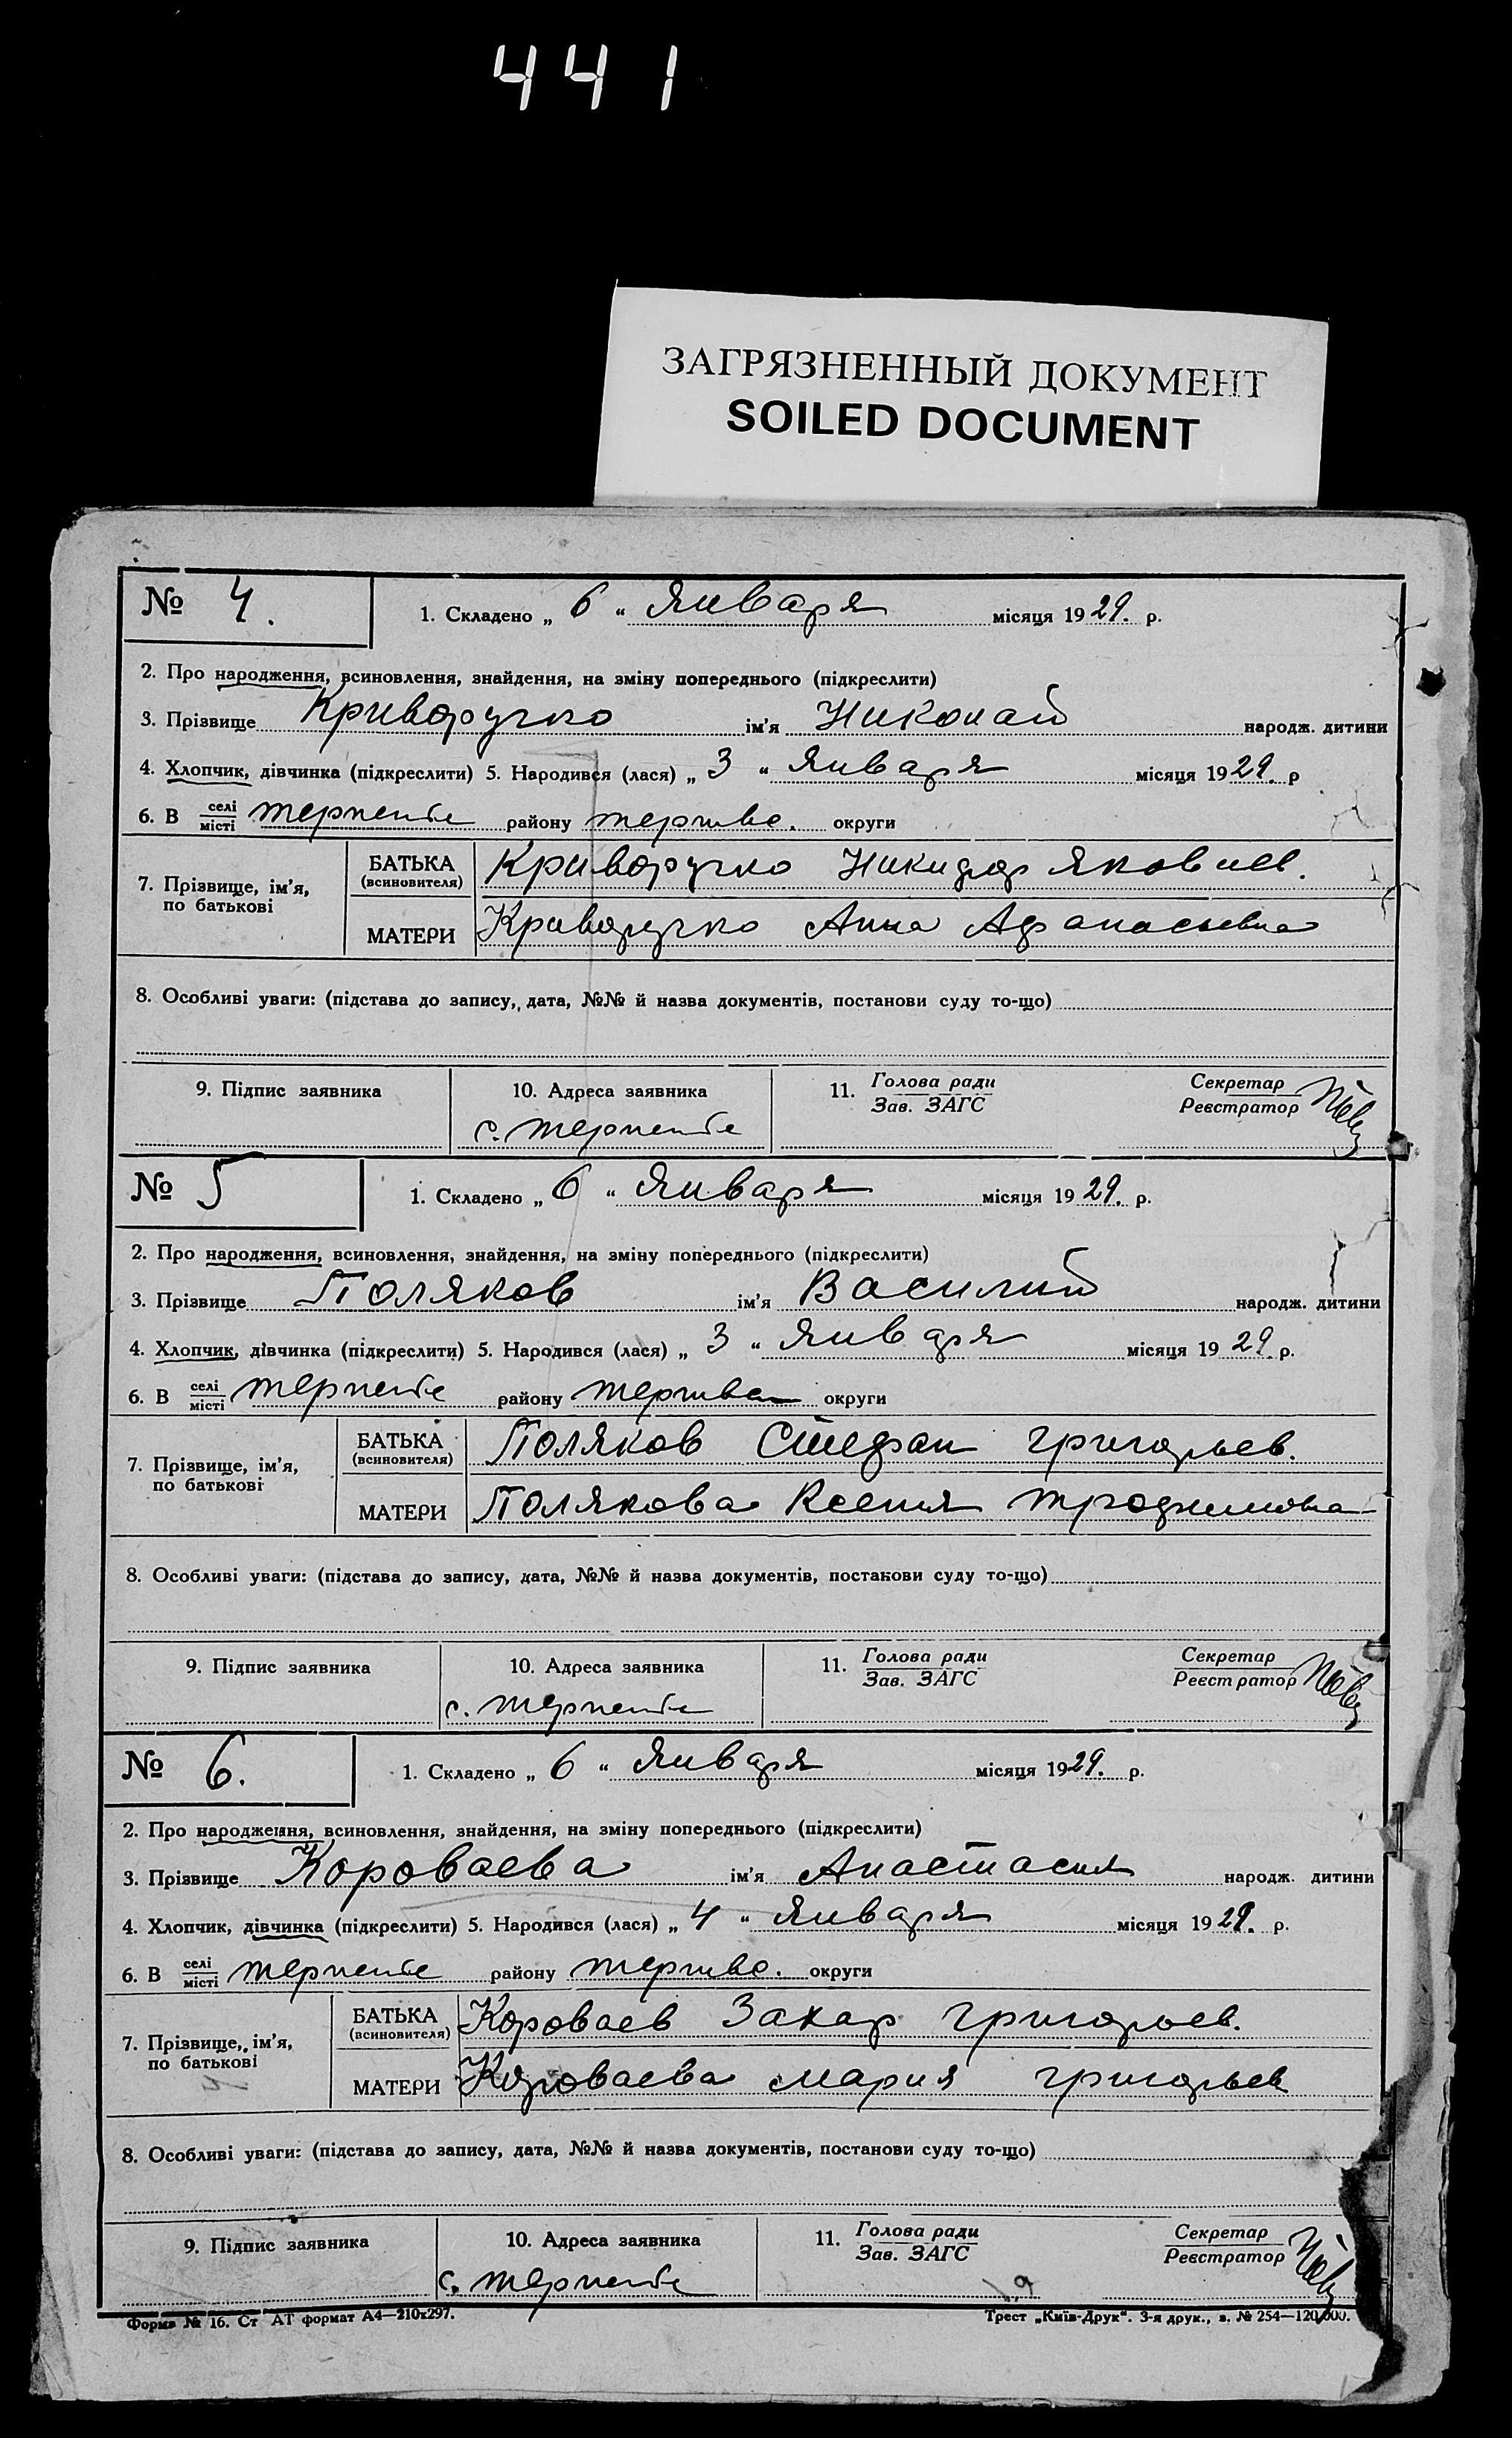 441
ЗАГРЯЗНЕННЫЙ ДОКУМЕНТ
SOILED DOCUMENT
№ 4.
1. Складено „ 6 “ Января місяця 1929. р.
2. Про народження, всиновлення, знайдення, на зміну попереднього (підкреслити)
3. Прізвище Криворучко ім'я Николай народж. дитини
4. Хлопчик, дівчинка (підкреслити) 5. Народився (лася) „ 3 “ Января місяця 1929. р
6. В селі місті Терпенье району округи
7. Прізвище, ім'я, по батькові
БАТЬКА (всиновителя) Криворучко Никифор Яковлев.
МАТЕРИ Криворучко Анна Афанасьевна
8. Особливі уваги: (підстава до запису, дата, №№ й назва документів, постанови суду то-що)
9. Підпис заявника 10. Адреса заявника 11. Голова ради Зав. ЗАГС Секретар Реєстратор
с. Терпенье
№ 5
1. Складено „ 6 “ Января місяця 1929. р.
2. Про народження, всиновлення, знайдення, на зміну попереднього (підкреслити)
3. Прізвище Поляков ім'я Василий народж. дитини
4. Хлопчик, дівчинка (підкреслити) 5. Народився (лася) „ 3 “ Января місяця 1929 р.
6. В селі місті Терпенье району округи
7. Прізвище, ім'я, по батькові
БАТЬКА (всиновителя) Поляков Стефан Григорьев.
МАТЕРИ Полякова Ксения Трофимовна
8. Особливі уваги: (підстава до запису, дата, №№ й назва документів, постанови суду то-що)
9. Підпис заявника 10. Адреса заявника 11. Голова ради Зав. ЗАГС Секретар Реєстратор
с. Терпенье
№ 6.
1. Складено „ 6 “ Января місяця 1929. р.
2. Про народження, всиновлення, знайдення, на зміну попереднього (підкреслити)
3. Прізвище Короваева ім'я Анастасия народж. дитини
4. Хлопчик, дівчинка (підкреслити) 5. Народився (лася) „ 4 “ Января місяця 1929. р.
6. В селі місті Терпенье району округи
7. Прізвище, ім'я, по батькові
БАТЬКА (всиновителя) Короваев Захар Григорьев.
МАТЕРИ Короваева Мария Григорьев
8. Особливі уваги: (підстава до запису, дата, №№ й назва документів, постанови суду то-що)
9. Підпис заявника 10. Адреса заявника 11. Голова ради Зав. ЗАГС Секретар Реєстратор
с. Терпенье
Форма № 16. Ст АТ формат А4—210х297. Трест „Київ-Друк“. 3-я друк., з. № 254—120,000.